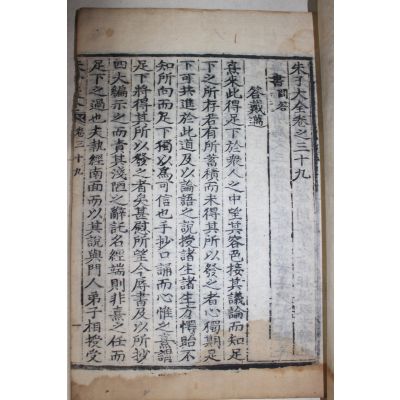 朱子大全卷之三十九
書 問答
答戴邁
熹來此得足下於衆人之中望其容色接其議論而知足
下之所存若有所蓄積而未得其所以發之者心獨期足
下可共進於此道及以論語之說授諸生諸生方愕眙不
知所向而足下獨以爲可信也手抄口誦而心惟之熹謂
足下將得其所以發之者矣甚慰所望今辱書及以所抄
四大編示之而責其淺陋之辭託名經端則非熹之任而
足下之過也夫執經南面而以其說與門人弟子相授受
卷三十九